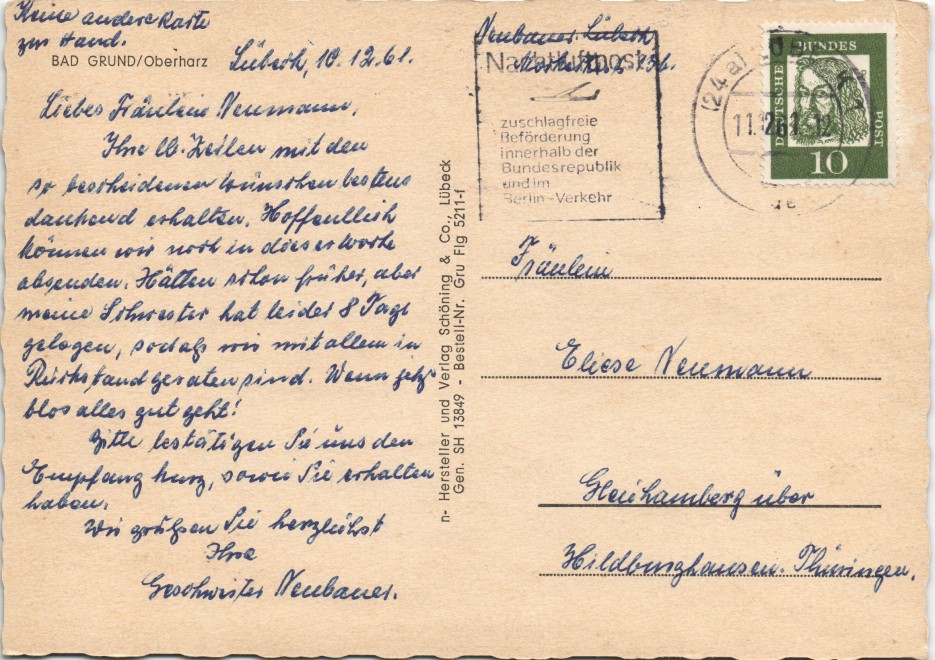 Keine andere Karte
zur Hand.
BAD GRUND/Oberharz
Lübeck, 10.12.61.
Liebes Fräulein Neumann,
Ihre lb. Zeilen mit den
so bescheidenen Wünschen bestens
dankend erhalten. Hoffentlich
können wir noch in dieser Woche
absenden. Hätten schon früher, aber
meine Schwester hat leider 8 Tage
gelegen, sodaß wir mit allem in
Rückstand geraten sind. Wenn jetzt
blos alles gut geht!
Bitte bestätigen Sie uns den
Empfang kurz, sowie Sie erhalten
haben.
Wir grüßen Sie herzlichst
Ihre
Geschwister Neubauer.
n- Hersteller und Verlag Schöning & Co., Lübeck
Gen. SH 13849 - Bestell-Nr. Gru Flg 5211-f
Neubauer. Lübeck
136.
Nachtluftpost
zuschlagfreie
Beförderung
innerhalb der
Bundesrepublik
und im
Berlin-Verkehr
(24a)
11.12.61. 12
DEUTSCHE
BUNDES
POST
10
Fräulein
Eliese Neumann
Gleichamberg über
Hildburghausen. Thüringen.